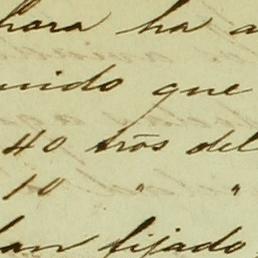 hora ha a
nido que
40 trós del
10 " "
han fijado